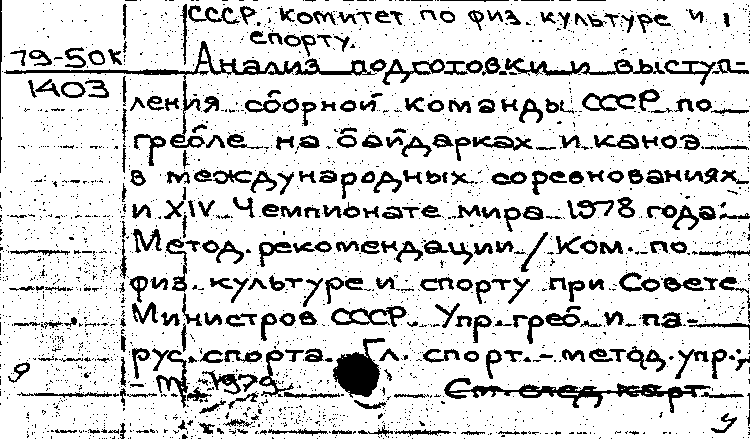 СССР. Комитет по физ. культуре и
спорту.
79-50к
1403
Анализ подготовки и выступ-
ления сборной команды СССР по
гребле на байдарках и каноэ
в международных соревнованиях
и XIV Чемпионате мира 1978 года:
Метод. рекомендации / Ком. по
физ. культуре и спорту при Совете
Министров СССР. Упр. греб. и па-
рус. спорта. Гл. спорт.-метод. упр.;
- М., 1979
См. след. карт.